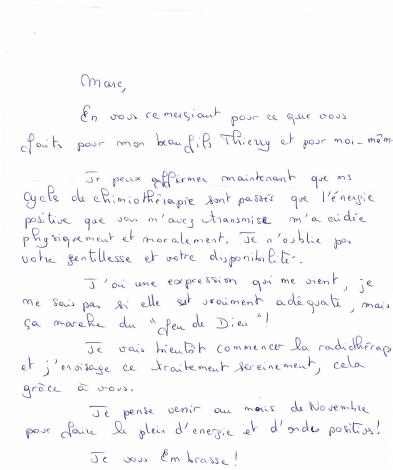 Marc,
En vous remerciant pour ce que vous
faits pour mon beau fils Thierry et pour moi-mêm
Je peux affirmer maintenant que ms
cycle de chimiothérapie sont passés que l'énergie
positive que vous m'avez transmise m'a aidée
physiquement et moralement. Je n'oublie pas
votre gentillesse et votre disponibilité.
J'ai une expression qui me vient, je
me sais pas si elle est vraiment adéquate, mais
ça marche du "feu de Dieu"!
Je vais bientôt commencer la radiothérap
et j'envisage ce traitement sereinement, cela
grâce à vous.
Je pense venir au mois de Novembre
pour faire le plein d'energie et d'ondes positives!
Je vous Embrasse!